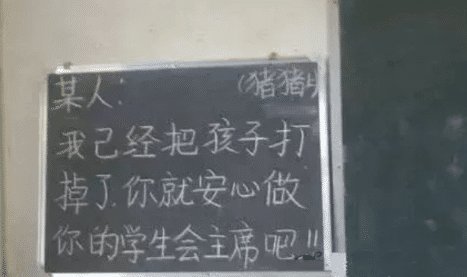 某人: (猪猪
我已经把孩子打
掉了.你就安心做
你的学生会主席吧!!